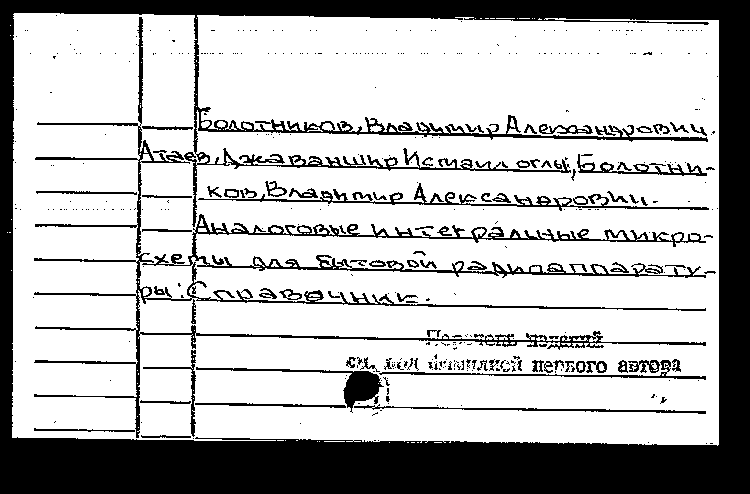 Болотников, Владимир Александрович.
Атаев, Джаваншир Исмаил оглы, Болотни-
ков, Владимир Александрович.
Аналоговые интегральные микро-
схемы для бытовой радиоаппарату-
ры: Справочник.
Перечень изданий
см. под фамилией первого автора